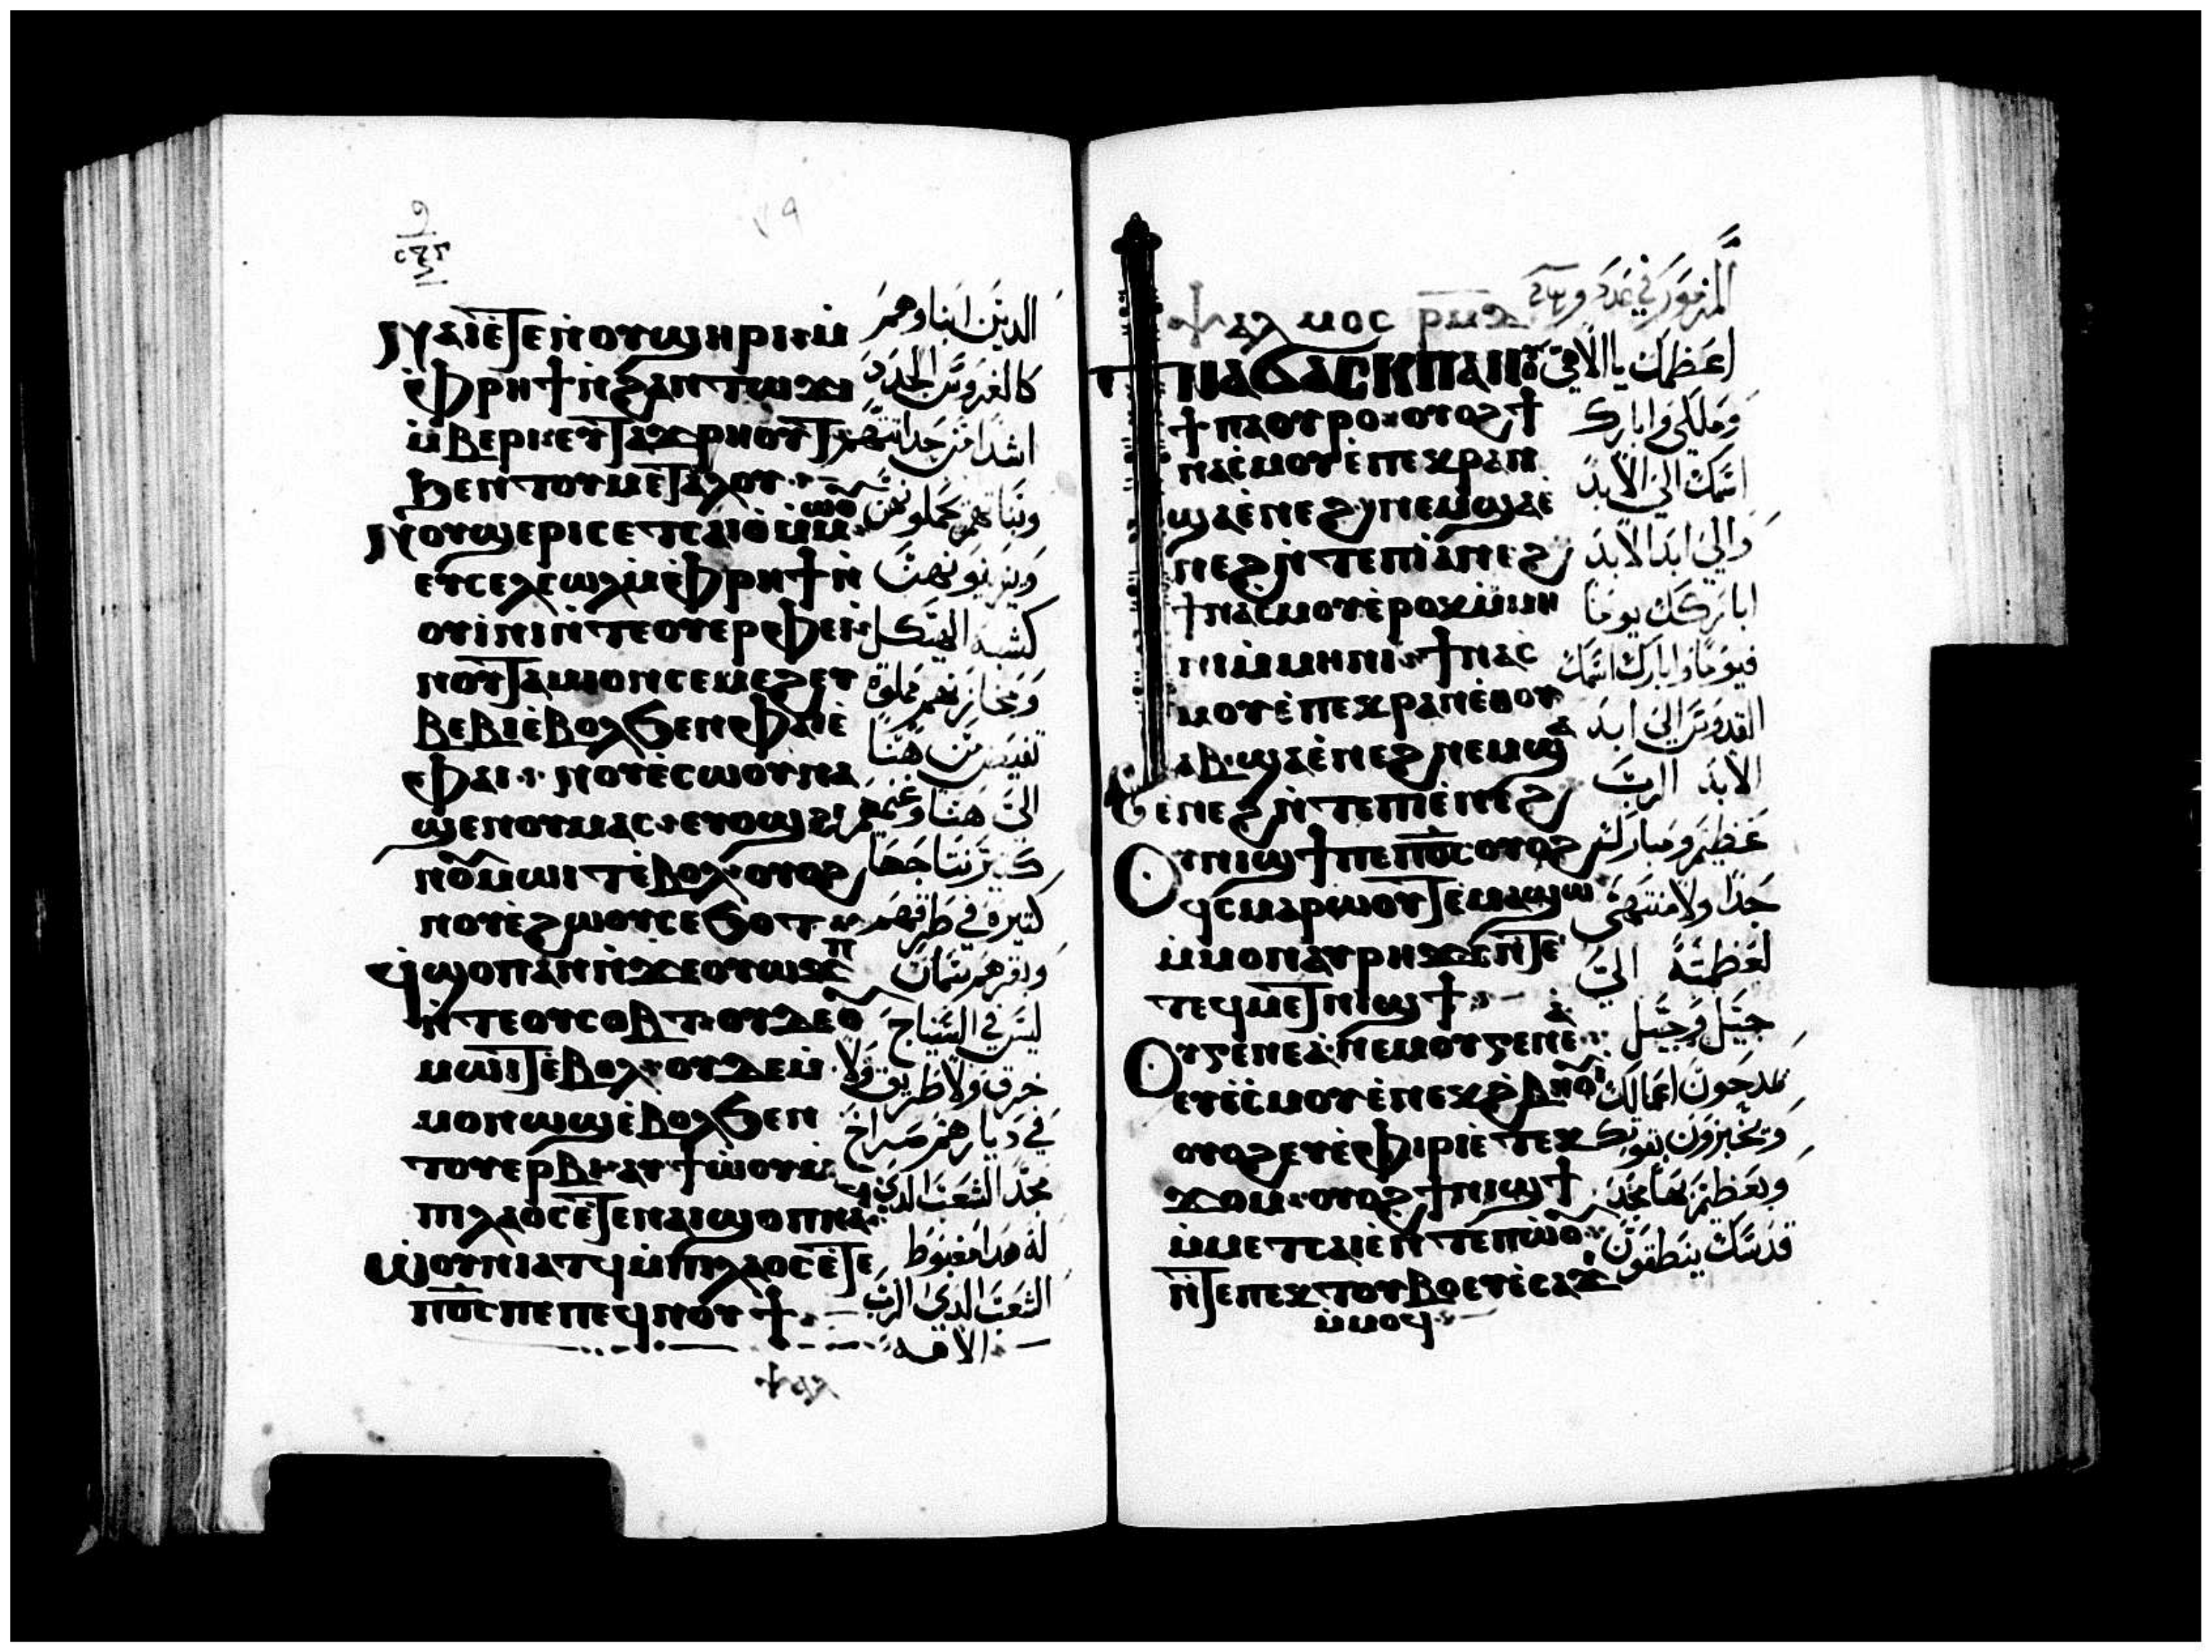 ⲛⲁⲓ ⲉⲧⲉ ⲛⲟⲩϣⲏⲣⲓ ⲙ̀
ⲫⲣⲏϯ ⲛ̀ϩⲁⲛⲧⲱϫⲓ
ⲙ̀ⲃⲉⲣⲓ ⲉⲩⲧⲁϫⲣⲏⲟⲩⲧ
ϧⲉⲛ ⲧⲟⲩⲙⲉⲧⲁⲗⲟⲩ
ⲛⲟⲩϣⲉⲣⲓ ⲥⲉⲧⲥⲁⲓⲟ ⲙ̀ⲙⲱⲟⲩ
ⲉⲩⲥⲉⲗⲥⲱⲗ ⲙ̀ⲫⲣⲏϯ ⲛ̀
ⲟⲩⲓⲛⲓ ⲛ̀ⲧⲉ ⲟⲩⲉⲣⲫⲉⲓ
ⲛⲟⲩⲧⲁⲙⲓⲟⲛ ⲥⲉⲙⲉϩ ⲉⲩ
ⲃⲉⲃⲓ ⲉ̀ⲃⲟⲗ ϧⲉⲛ ⲫⲁⲓ ⲉ̀
ⲫⲁⲓ ⲛⲟⲩⲉ̀ⲥⲱⲟⲩ ⲛⲁ
ϣⲉ ⲛⲟⲩⲙⲁⲥ ⲉⲩⲟϣ ϩⲓ
ⲛⲟⲩⲙⲱⲓⲧ ⲉ̀ⲃⲟⲗ ⲟⲩⲟϩ
ⲛⲟⲩⲉ̀ϩⲱⲟⲩ ⲥⲉϭⲟⲧⲡ
ϥϣⲟⲡ ⲁⲛ ⲛ̀ϫⲉ ⲟⲩⲱϫⲡ
ⲛ̀ⲧⲉ ⲟⲩⲥⲟⲃⲧ ⲟⲩⲇⲉ ⲟⲩ
ⲙⲱⲓⲧ ⲉ̀ⲃⲟⲗ ⲟⲩⲇⲉ ⲙ̀
ⲙⲟⲛ ⲱϣ ⲉ̀ⲃⲟⲗ ϧⲉⲛ
ⲧⲟⲩⲉⲣⲃⲓ ⲁⲩϯⲱⲟⲩ ⲙ̀
ⲡⲓⲗⲁⲟⲥ ⲉⲧⲉ ⲛⲁⲓ ϣⲟⲡ ⲛⲁϥ
ⲱⲟⲩⲛⲓⲁⲧϥ ⲙ̀ⲡⲓⲗⲁⲟⲥ ⲉ̀ⲧⲉ
ⲡϭⲥ ⲡⲉ ⲡⲉϥⲛⲟⲩϯ
الدين ابنا وهمر
كالغروس الجدد
اشدا من حداتتهم
وبناتهم يحملونهن
ويزينونهن
كشبه الهيكل
ومخازنهم مملوة
تفيض من هنا
الى هنا وغنمهم
كثير نتاجها
كتيرة في طرقهم
وبقرهم سمان
ليس في السياج
خرق ولا طريق ولا
في ديارهم صراخ
مجدا الشعب الدى
له هدا مغبوط
الشعب الدي الرب
الاهه
ⲯⲁⲗⲙⲟⲥ ⲣⲙⲇ
ϯⲛⲁϭⲁⲥⲕ ⲡⲁⲛⲟⲩ
ϯ ⲡⲁⲟⲩⲣⲟ ⲟⲩⲟϩ ϯ
ⲛⲁⲥⲙⲟⲩ ⲉ̀ⲡⲉⲕⲣⲁⲛ
ϣⲁ ⲉ̀ⲛⲉϩ ⲛⲉⲙ ϣⲁ ⲉ̀
ⲛⲉϩ ⲛ̀ⲧⲉ ⲡⲓⲉ̀ⲛⲉϩ
ϯⲛⲁⲥⲙⲟⲩ ⲉ̀ⲣⲟⲕ ⲙ̀ⲙⲏ
ⲛⲓ ⲙ̀ⲙⲏⲛⲓ ϯⲛⲁⲥ
ⲙⲟⲩ ⲉ̀ⲡⲉⲕⲣⲁⲛ ⲉ̀ⲑⲟⲩ
ⲁⲃ ϣⲁ ⲉ̀ⲛⲉϩ ⲛⲉⲙ ϣⲁ
ⲉ̀ⲛⲉϩ ⲛ̀ⲧⲉ ⲡⲓⲉ̀ⲛⲉϩ
ⲟⲩⲛⲓϣϯ ⲡⲉ ⲡϭⲥ ⲟⲩⲟϩ
ϥⲥⲙⲁⲣⲱⲟⲩⲧ ⲉ̀ⲙⲁϣⲱ
ⲙ̀ⲙⲟⲛ ⲁⲩⲣⲏϫⲥ ⲛ̀ⲧⲉ
ⲧⲉϥⲙⲉⲧⲛⲓϣϯ
ⲟⲩⲅⲉⲛⲉⲁ ⲛⲉⲙ ⲟⲩⲅⲉⲛⲉⲁ
ⲉⲩⲉ̀ⲥⲙⲟⲩ ⲉ̀ⲛⲉⲕϩⲃⲏⲟⲩⲓ
ⲟⲩⲟϩ ⲉⲩⲉ̀ⲫⲓⲣⲓ ⲉ̀ⲧⲉⲕ
ϫⲟⲙ ⲟⲩⲟϩ ϯⲛⲓϣϯ
ⲙ̀ⲙⲉⲧⲥⲁⲓⲉ̀ ⲛ̀ⲧⲉ ⲡⲱⲟⲩ
ⲛ̀ⲧⲉ ⲡⲉⲕⲧⲟⲩⲃⲟ ⲉⲩⲉ̀ⲥⲁϫⲓ
ⲙ̀ⲙⲟϥ
المزمور في عدد
اعظمك يا الاهي
وملكي وابارك
اسمك الى الابد
والى ابد الابد
اباركك يوما
فيوما وابارك اسمك
القدوس الى ابد
الابد الرب
عظيم ومبارك
جدا ولا منتهى
لعظمته الى
جيل وجيل
يمدحون اعمالك
ويخبرون بقوتك
وبعظم بها مجد
قدسك ينطقون